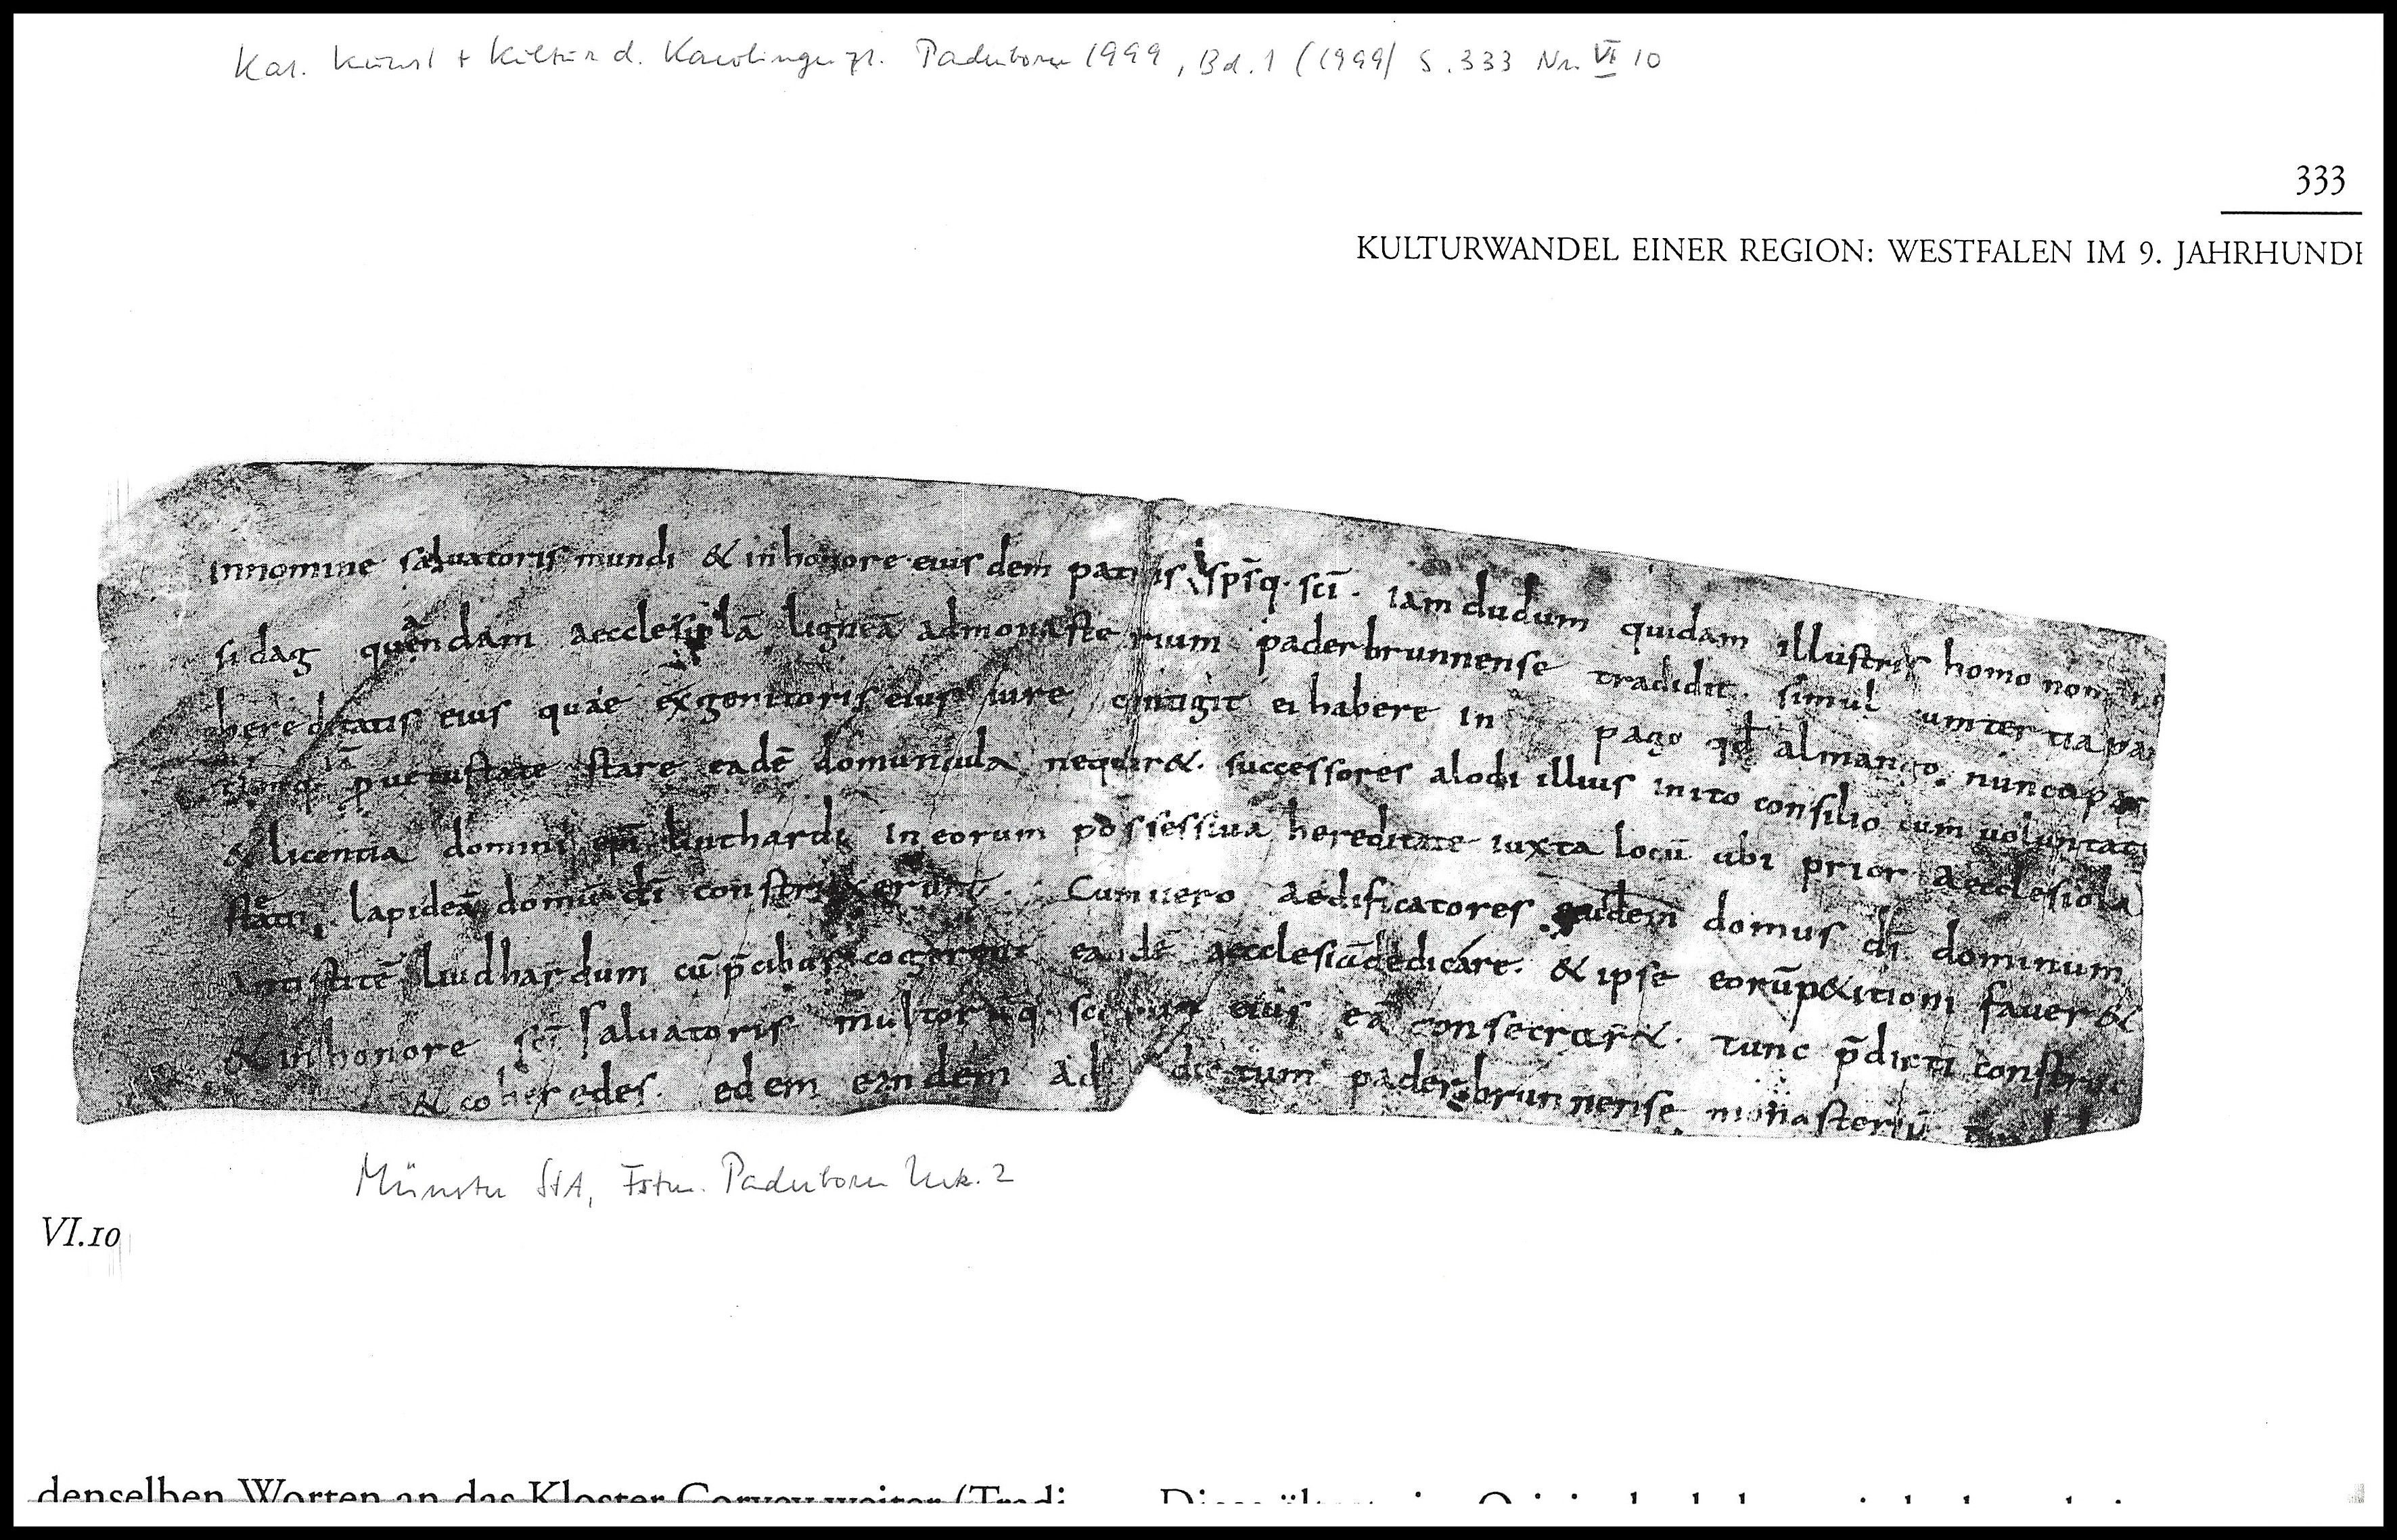 Kat. Kunst + Kultur d. Karolingerzt. Paderborn 1999, Bd. 1 (1999) S. 333 Nr. VI 10
333
KULTURWANDEL EINER REGION: WESTFALEN IM 9. JAHRHUNDE
Innomine salvatoris mundi & inhonore eius dem patris sp̄sq· sc̄i. Iam dudum quidam illustris homo nomine
sidag quandam aecclesiolā ligneā admonasterium paderbrunnense tradidit. simul cumtertia par
hereditatis eius quae exgenitoris eius iure contigit ei habere in pago qd almango. nuncapat
p̄ uetustate stare eadē domuncula nequir&. successores alodi illius inito consilio cum uoluntate
& licentia domini ep̄i liuthardi in eorum possessiua hereditate iuxta locū ubi prior aecclesiola
stetit, lapideā domū dī construxerunt. Cum uero aedificatores eiusdem domus dī dominum
antistitē liudhardum cū p̄cibus cogerent eandē aecclesiā dedicare. & ipse eorū p&itioni faver&
& in honore sc̄i salvatoris multorūq· eius eā consecrar&. tunc p̄dicti construc
& coheredes. edem eandem ad dictum paderbrunnense monasteriū
Münster StA, Fstm. Paderborn Urk. 2
VI.10
denselben Worten an das Kloster Corvey weiter (Tradi